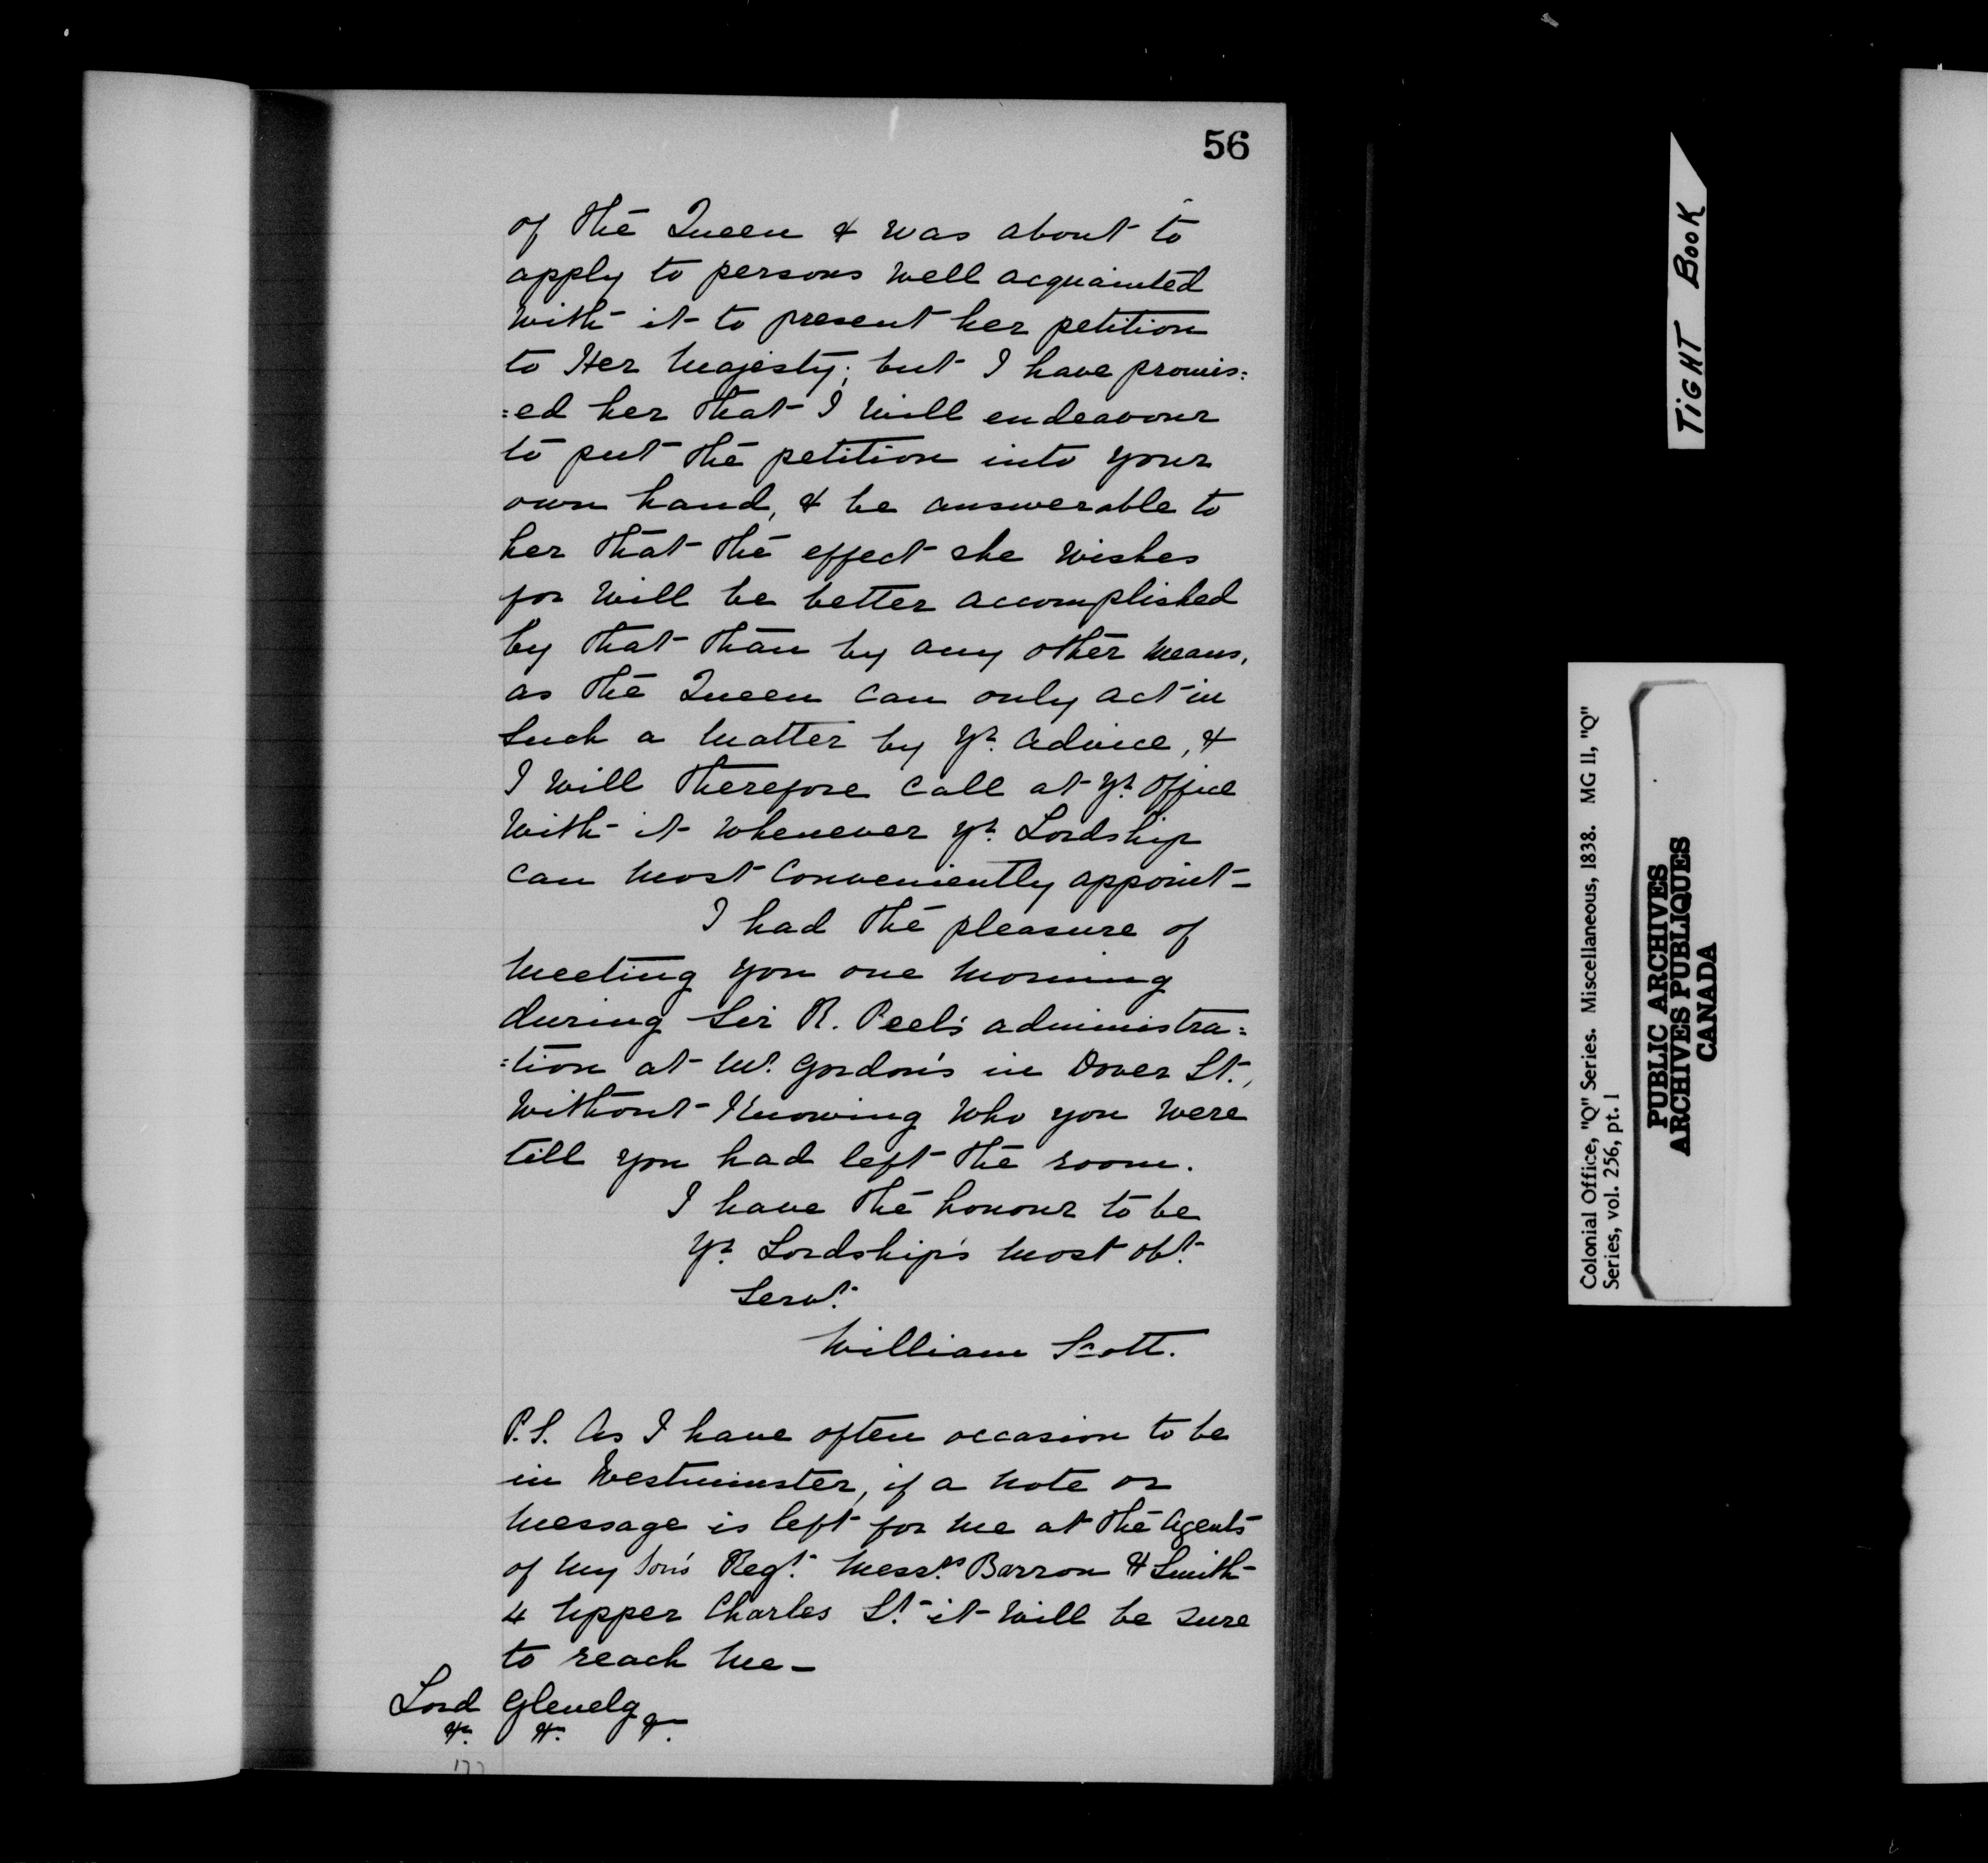 56
of the Queen & was about to
apply to persons well acquainted
with it to present her petition
to Her Majesty; but I have promis:
:ed her that I will endeavour
to put the petition into your
own hand, & be answerable to
her that the effect she wishes
for will be better accomplished
by that than by any other means,
as the Queen can only act in
such a matter by yr. advice, &
I will therefore call at yr. Office
with it whenever yr. Lordship
can most conveniently appoint –
I had the pleasure of
meeting you one morning
during Sir R. Peel's administra:
:tion at Mr. Gordon's in Dover St.,
without knowing who you were
till you had left the room.
I have the honour to be
Yr. Lordship's most obt.
Servt.
William Scott.
P.S. As I have often occasion to be
in Westminster, if a note or
message is left for me at the Agents
of my son's Regt. Messrs. Barron & Smith
4 Upper Charles St. it will be sure
to reach me –
Lord Glenelg
&c. &c. &c.
TIGHT BOOK
Colonial Office, "Q" Series. Miscellaneous, 1838. MG 11, "Q"
Series, vol. 256, pt. 1
PUBLIC ARCHIVES
ARCHIVES PUBLIQUES
CANADA